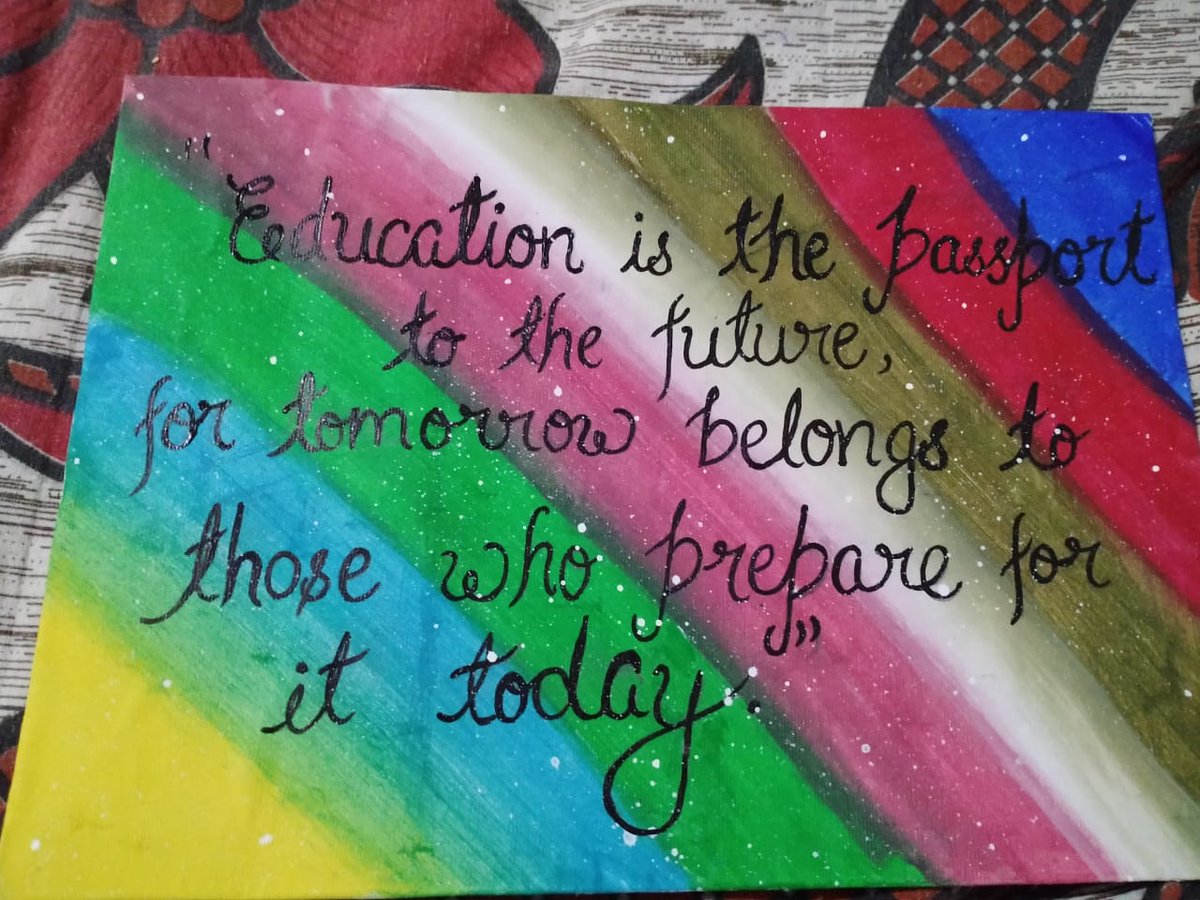 "Education is the passport
to the future,
for tomorrow belongs to
those who prepare for
it today."